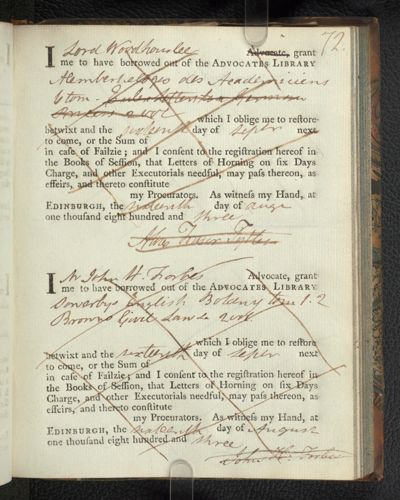 72.
I Lord Woodhouselee Advocate, grant
me to have borrowed out of the ADVOCATES LIBRARY
des Academiciens
6 tom.
2 vol
which I oblige me to restore
betwixt and the sixteenth day of Sepr next
to come, or the Sum of
in case of Failzie; and I consent to the registration hereof in
the Books of Session, that Letters of Horning on six Days
Charge, and other Executorials needful, may pass thereon, as
effeirs, and thereto constitute
my Procurators. As witness my Hand, at
EDINBURGH, the sixteenth day of Augt
one thousand eight hundred and three
Alexr Fraser Tytler
I Mr John H. Forbes Advocate, grant
me to have borrowed out of the ADVOCATES LIBRARY
Sowerbys English Botany tom 1. 2
Browns Civil Law 2 vol
which I oblige me to restore
betwixt and the sixteenth day of Sepr next
to come, or the Sum of
in case of Failzie; and I consent to the registration hereof in
the Books of Session, that Letters of Horning on six Days
Charge, and other Executorials needful, may pass thereon, as
effeirs, and thereto constitute
my Procurators. As witness my Hand, at
EDINBURGH, the sixteenth day of August
one thousand eight hundred and three
John H. Forbes